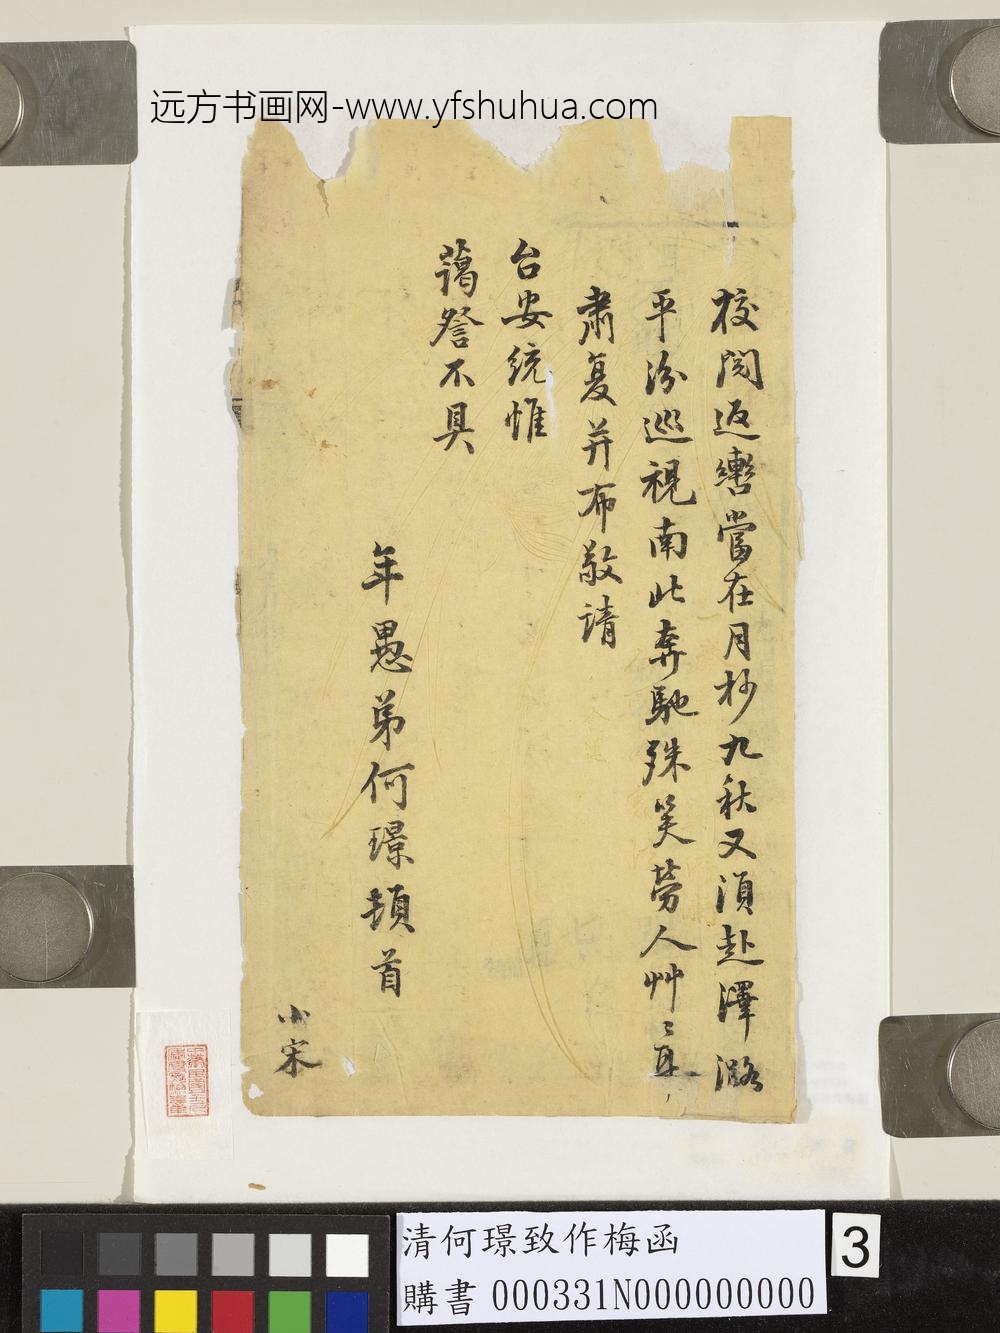 远方书画网-www.yfshuhua.com
校閲返轡當在月杪九秋又須赴澤潞
平汾巡視南北奔馳殊笑勞人艸〻耳
肅复并布敬請
台安統惟
藹詧不具
年愚弟何璟頓首
小宋
清何璟致作梅函
購書 000331N000000000
3